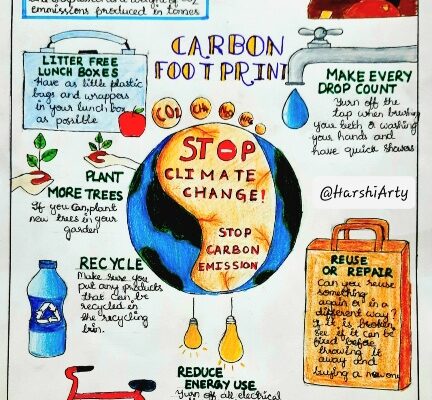 and expressed as a weight of CO2
emmissions produced in tonnes
CARBON
FOOTPRINT
LITTER FREE
LUNCH BOXES
Have as little plastic
bags and wrappers
in your lunch box
as possible
MAKE EVERY
DROP COUNT
Turn off the
tap when brushing
your teeth or washing
your hands and
have quick showers
CO2
CH4
STOP
CLIMATE
CHANGE!
STOP
CARBON
EMISSION
PLANT
MORE TREES
If you can, plant
new trees in your
garden
@HarshiArty
RECYCLE
Make sure you
put any products
that can be
recycled in
the recycling
bin.
REUSE
OR REPAIR
Can you reuse
something
again or in a
different way?
If it is broken,
see if it can be
fixed before
throwing it
away and
buying a new one
REDUCE
ENERGY USE
Turn off all electrical